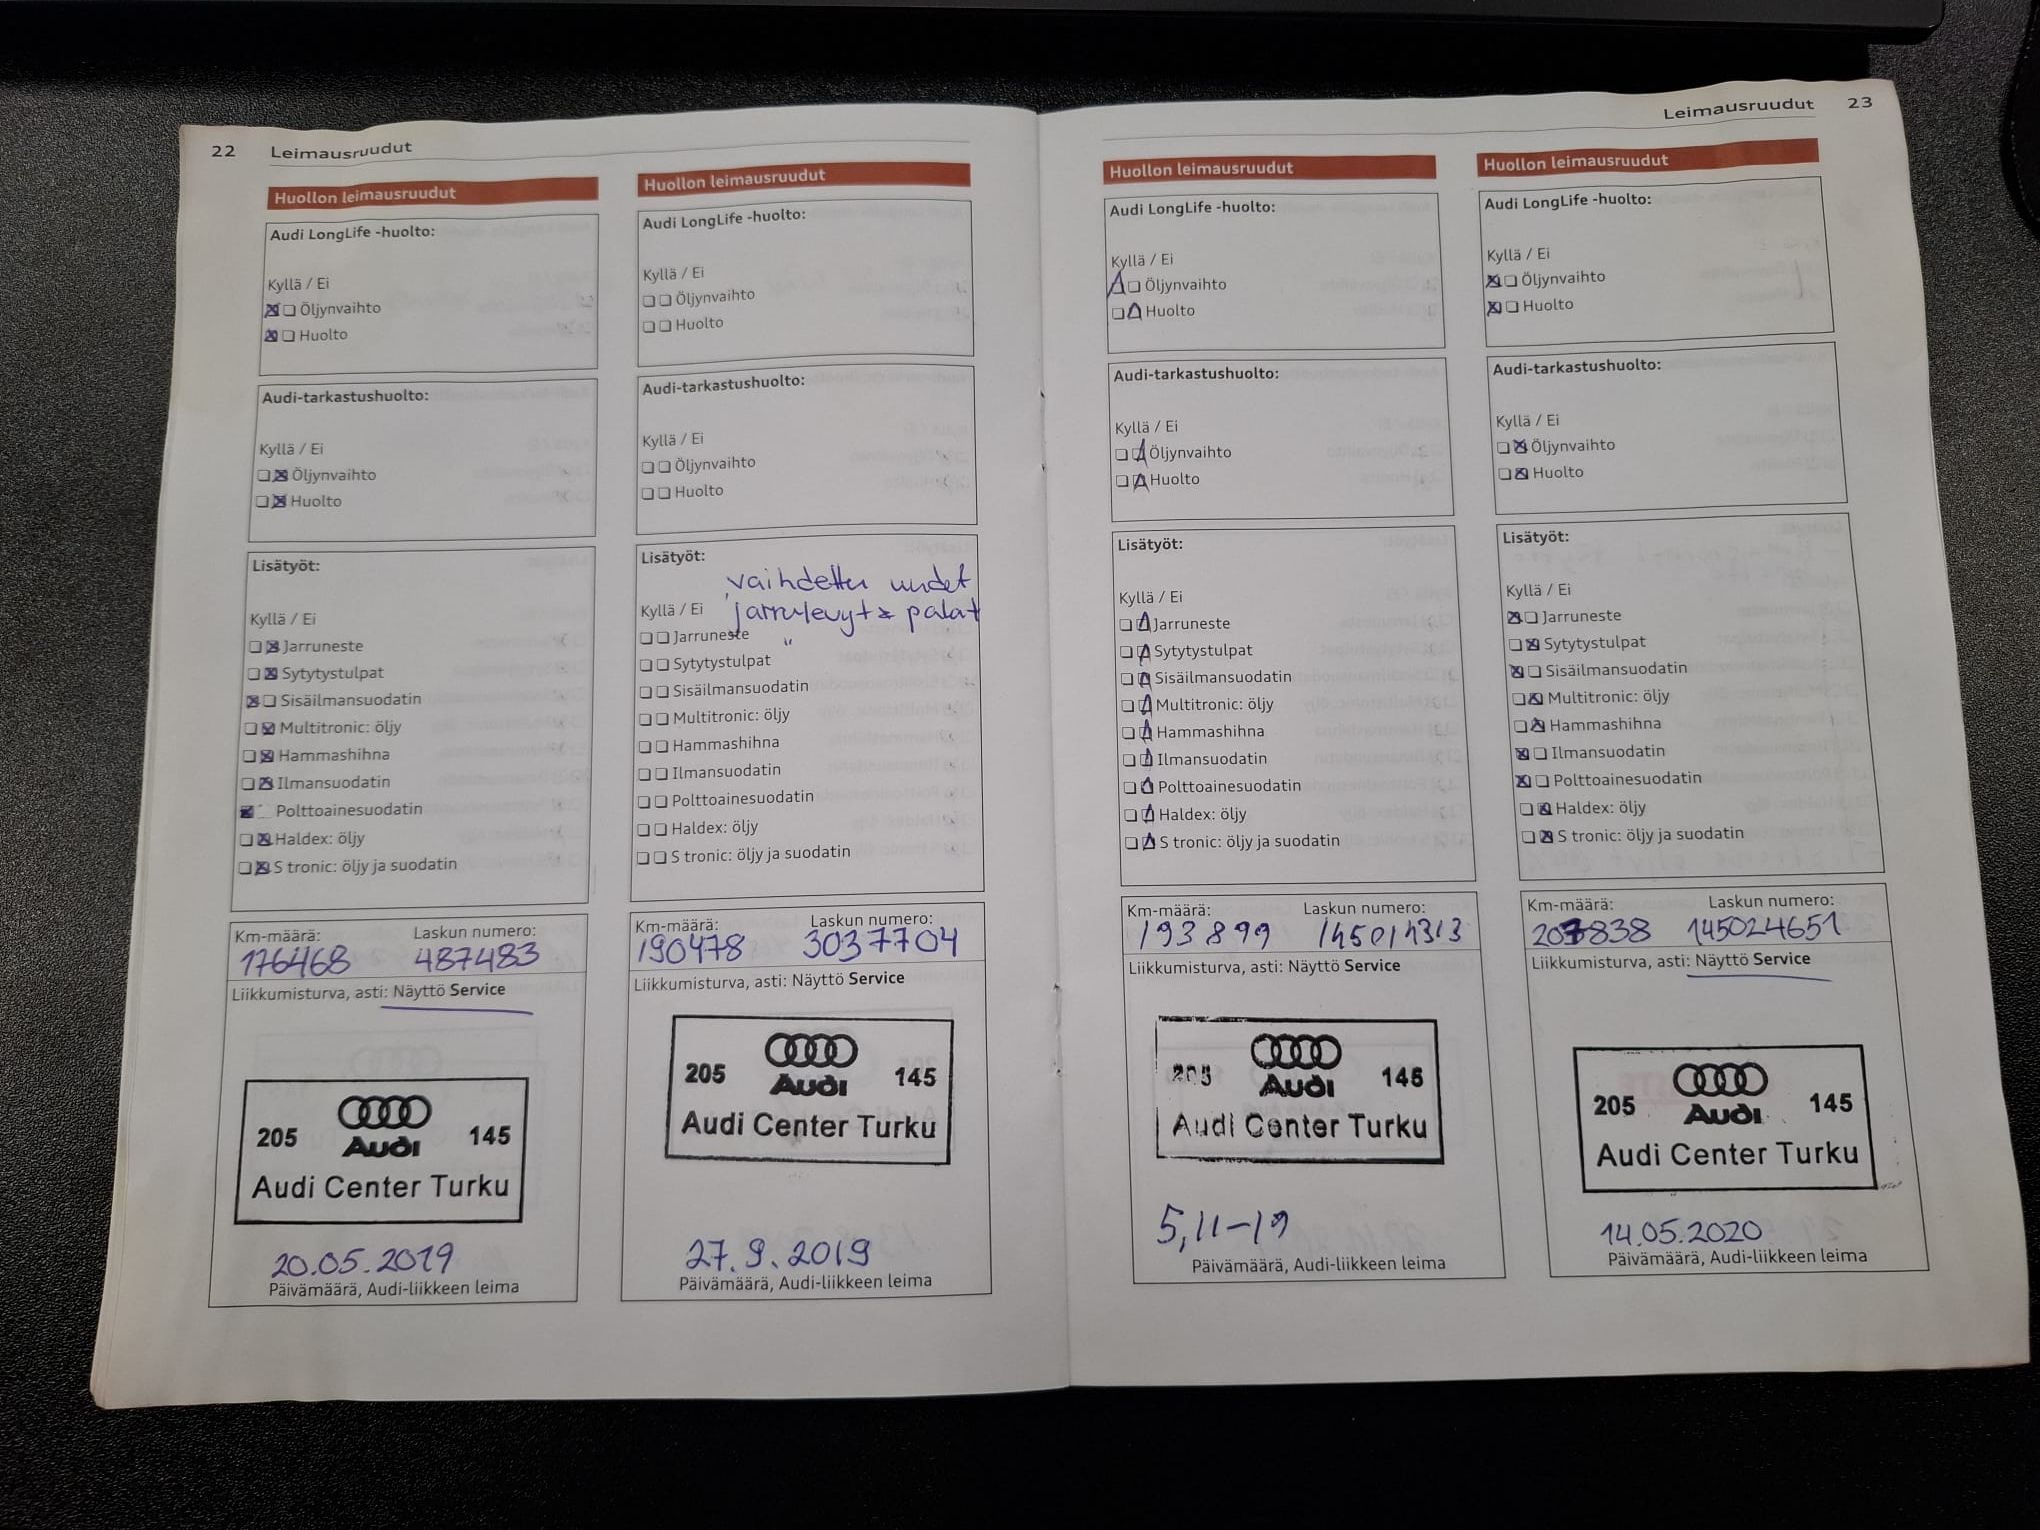 22 Leimausruudut
Huollon leimausruudut
Audi LongLife -huolto:
Kyllä / Ei
Öljynvaihto
Huolto
Audi-tarkastushuolto:
Kyllä / Ei
Öljynvaihto
Huolto
Lisätyöt:
Kyllä / Ei
Jarruneste
Sytytystulpat
Sisäilmansuodatin
Multitronic: öljy
Hammashihna
Ilmansuodatin
Polttoainesuodatin
Haldex: öljy
S tronic: öljy ja suodatin
Km-määrä: Laskun numero:
176468 487483
Liikkumisturva, asti: Näyttö Service
205 Audi 145
Audi Center Turku
20.05.2019
Päivämäärä, Audi-liikkeen leima
Huollon leimausruudut
Audi LongLife -huolto:
Kyllä / Ei
Öljynvaihto
Huolto
Audi-tarkastushuolto:
Kyllä / Ei
Öljynvaihto
Huolto
Lisätyöt:
vaihdettu uudet
Kyllä / Ei jarrulevyt & palat
Jarruneste "
Sytytystulpat
Sisäilmansuodatin
Multitronic: öljy
Hammashihna
Ilmansuodatin
Polttoainesuodatin
Haldex: öljy
S tronic: öljy ja suodatin
Km-määrä: Laskun numero:
190478 3037704
Liikkumisturva, asti: Näyttö Service
205 Audi 145
Audi Center Turku
27.9.2019
Päivämäärä, Audi-liikkeen leima
Leimausruudut 23
Huollon leimausruudut
Audi LongLife -huolto:
Kyllä / Ei
Öljynvaihto
Huolto
Audi-tarkastushuolto:
Kyllä / Ei
Öljynvaihto
Huolto
Lisätyöt:
Kyllä / Ei
Jarruneste
Sytytystulpat
Sisäilmansuodatin
Multitronic: öljy
Hammashihna
Ilmansuodatin
Polttoainesuodatin
Haldex: öljy
S tronic: öljy ja suodatin
Km-määrä: Laskun numero:
193899 145014313
Liikkumisturva, asti: Näyttö Service
205 Audi 145
Audi Center Turku
5,11-19
Päivämäärä, Audi-liikkeen leima
Huollon leimausruudut
Audi LongLife -huolto:
Kyllä / Ei
Öljynvaihto
Huolto
Audi-tarkastushuolto:
Kyllä / Ei
Öljynvaihto
Huolto
Lisätyöt:
Kyllä / Ei
Jarruneste
Sytytystulpat
Sisäilmansuodatin
Multitronic: öljy
Hammashihna
Ilmansuodatin
Polttoainesuodatin
Haldex: öljy
S tronic: öljy ja suodatin
Km-määrä: Laskun numero:
207838 145024651
Liikkumisturva, asti: Näyttö Service
205 Audi 145
Audi Center Turku
14.05.2020
Päivämäärä, Audi-liikkeen leima